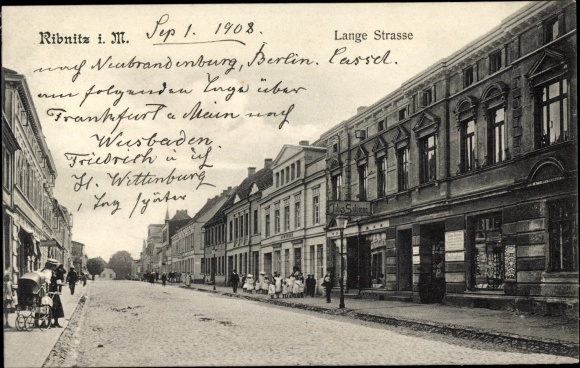 Ribnitz i. M.
Sep 1. 1908.
Lange Strasse
nach Neubrandenburg, Berlin. Cassel.
am folgenden Tage über
Frankfurt a Main nach
Wiesbaden.
Friedrich u ich
Wittenburg
1 Tag später